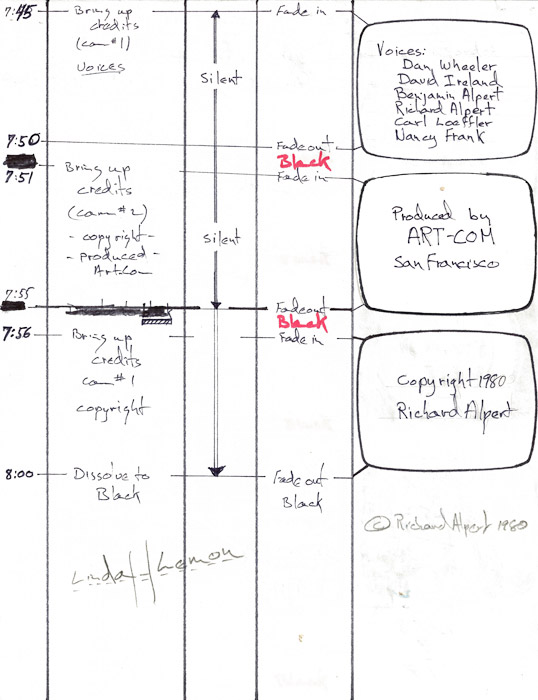 7:45
Bring up
credits
(cam #1)
Voices
Silent
Fade in
Voices:
Dan Wheeler
David Ireland
Benjamin Alpert
Richard Alpert
Carl Loeffler
Nancy Frank
7:50
Fade out
Black
7:51
Bring up
credits
(cam #2)
- copyright -
- produced -
Art-Com
Silent
Fade in
Produced by
ART-COM
San Francisco
7:55
Fade out
Black
7:56
Bring up
credits
cam #1
copyright
Fade in
Copyright 1980
Richard Alpert
8:00
Dissolve to
Black
Fade out
Black
© Richard Alpert 1980
Linda Lemon